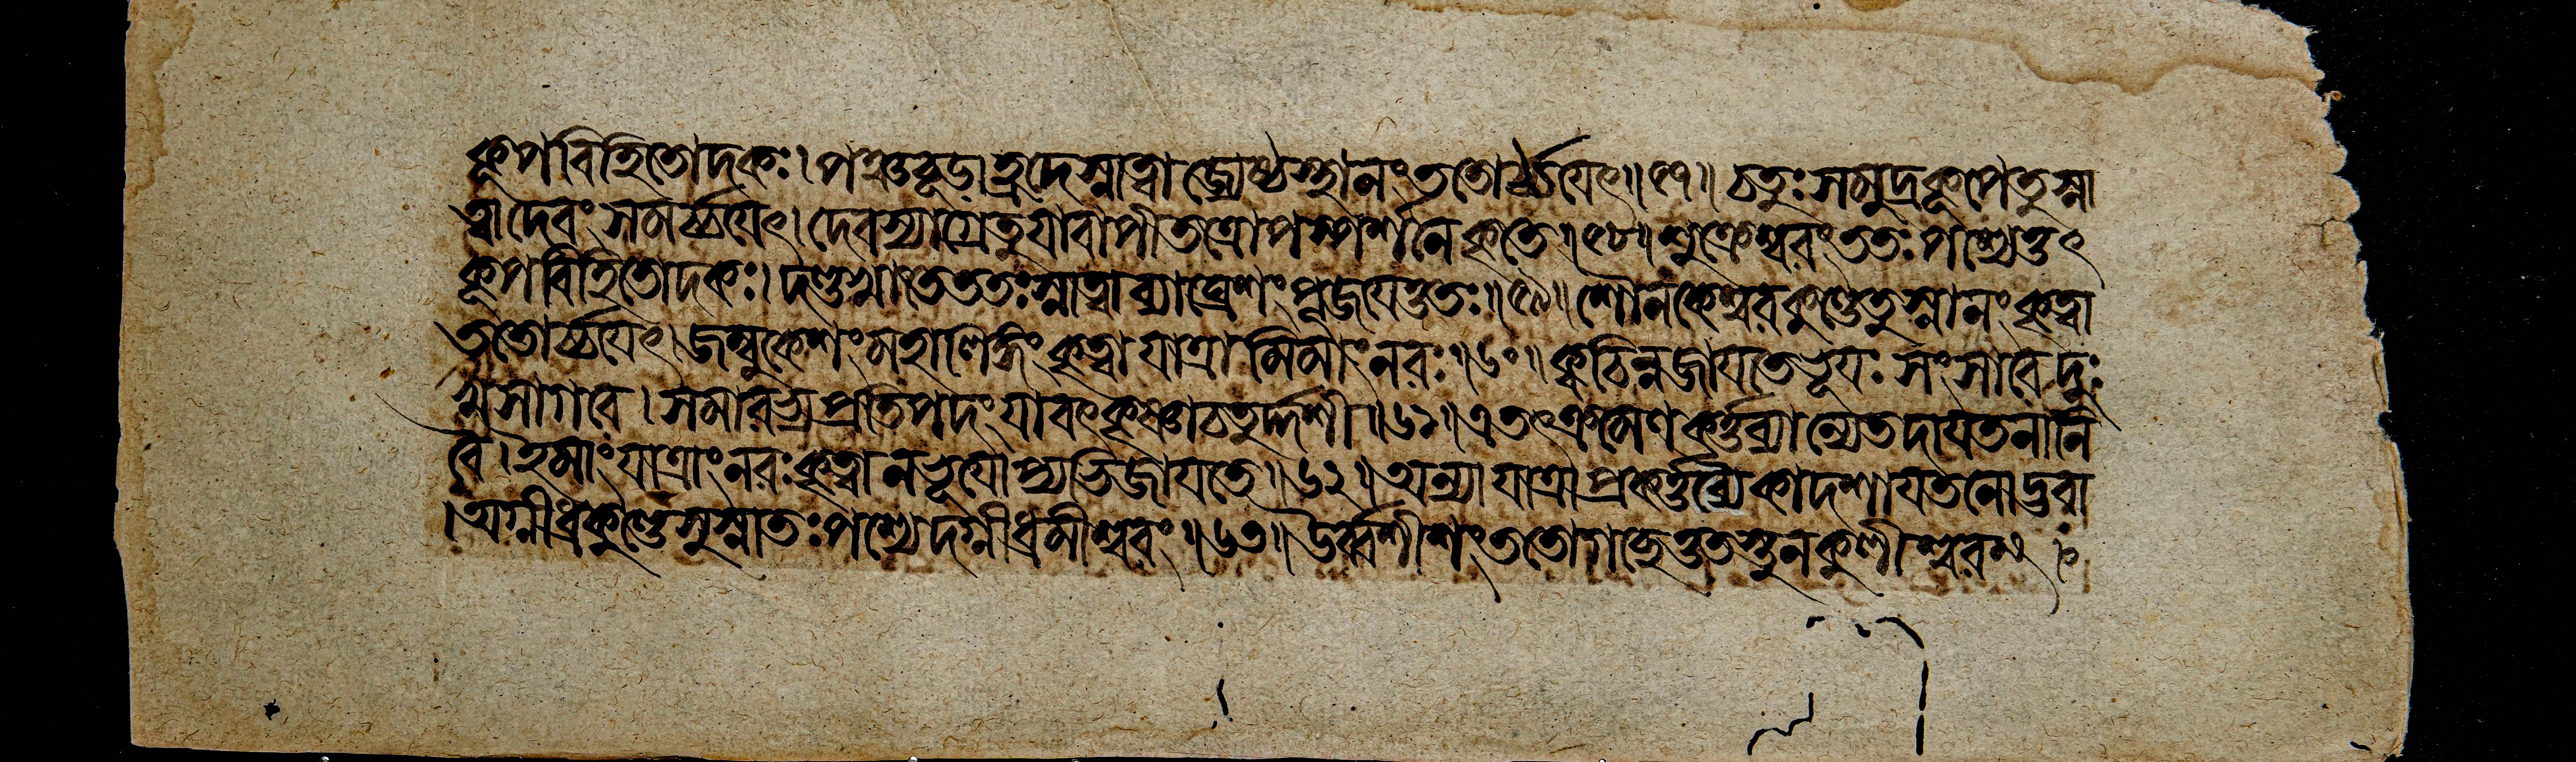 কূপবিহিতোদকঃ। পঞ্চচূড়াহ্রদেস্নাত্বাজ্যেষ্ঠস্থানংততোর্চ্চয়েৎ॥৫৭॥ চতুঃসমুদ্রকূপেতুস্না
ত্বাদেবংসমর্চ্চয়েৎ। দেবস্যাগ্রেতুযাবাপীতত্রোপস্পর্শনেকৃতে॥৫৮॥ শুক্রেশ্বরংততঃপশ্যেত্তৎ
কূপবিহিতোদকঃ। দণ্ডখাতেততঃস্নাত্বাব্যাঘ্রেশংপূজয়েত্ততঃ॥৫৯॥ শৌনকেশ্বরকুণ্ডেতুস্নানংকৃত্বা
ততোর্চ্চয়েৎ। জম্বুকেশংমহালিঙ্গিংকৃত্বাযাত্রামিমাংনরঃ॥৬০॥ ক্বচিন্নজায়তেভূয়ঃসংসারেদুঃ
খসাগরে। সমারভ্যপ্রতিপদংযাবৎকৃষ্ণাচতুর্দ্দশী॥৬১॥ এতৎক্রমেণকর্ত্তব্যান্যেতদায়তনানি
বৈ। ইমাংযাত্রাংনরঃকৃত্বানভূয়োপ্যভিজায়তে॥৬২॥ অন্যাযাত্রাপ্রকর্ত্তব্যৈকাদশায়তনোদ্ভবা
।অগ্নীধ্রকুণ্ডেসুস্নাতঃপশ্যেদগ্নীধ্রমীশ্বরং॥৬৩॥ উর্ব্বশীশংততোগচ্ছেত্ততস্তুনকুলীশ্বরম্